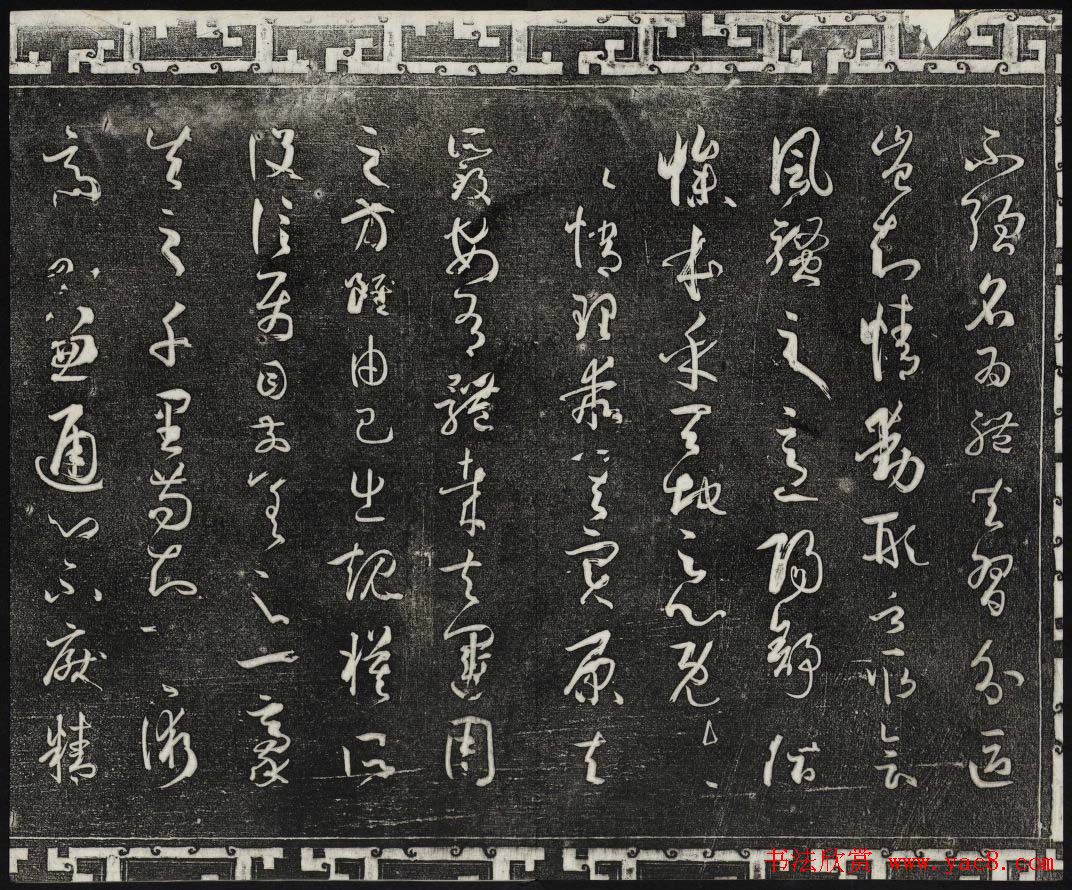 不強名為體共習分區
豈知情動形言取會
風騷之意陽舒陰
慘本乎天地之心既
情理乖其實原夫
所致安有體哉夫運用
之方雖由己出規模所
設信屬目前差之一豪
失之千里苟知其術
適可兼通心不厭精
书法欣赏 www.yac8.com